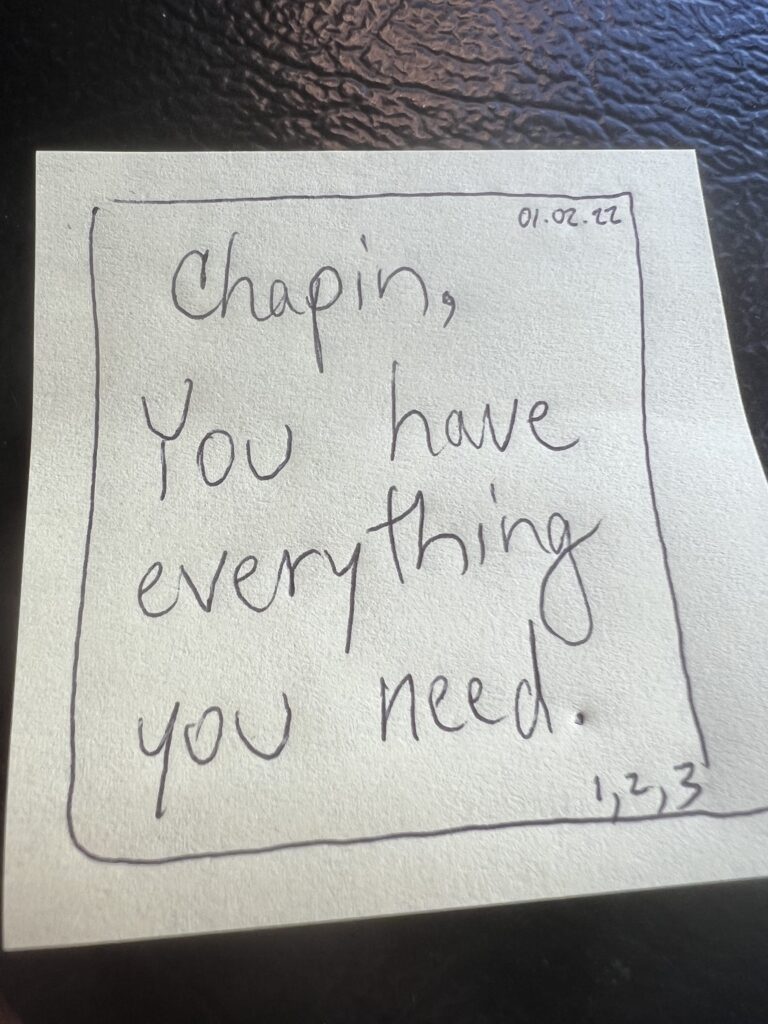 01.02.22
Chapin,
You have
everything
you need.
1,2,3